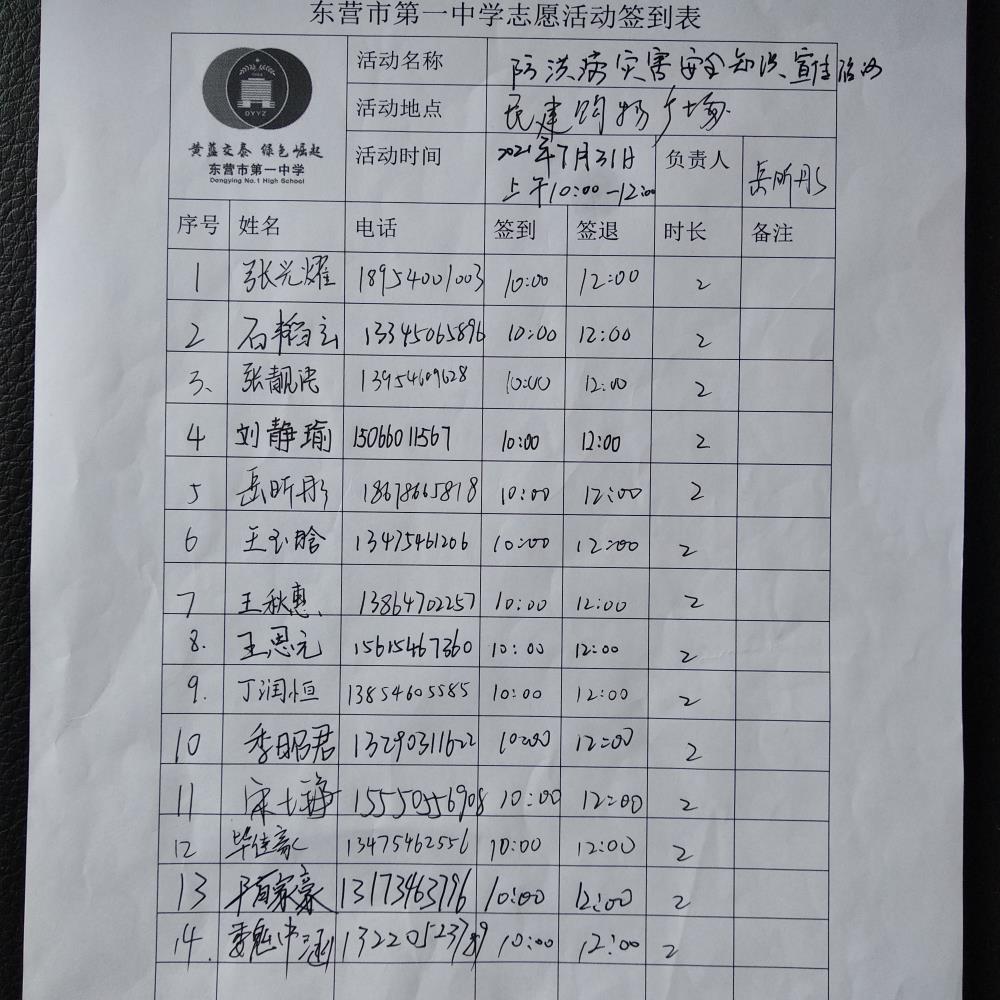 东营市第一中学志愿活动签到表
DYYZ
黄蓝交泰 绿色崛起
东营市第一中学
Dongying No.1 High School
活动名称 防洪 灾害安全知识宣传活动
活动地点 民建购物广场
活动时间 2021年7月31日 负责人 岳昕彤
上午10:00-12:00
序号 姓名 电话 签到 签退 时长 备注
1 张光耀 18954001003 10:00 12:00 2
2 石韬玄 13345065896 10:00 12:00 2
3、 张靓 13954609628 10:00 12:00 2
4 刘静瑜 15066011567 10:00 12:00 2
5 岳昕彤 18678665818 10:00 12:00 2
6 王玉晗 13475461206 10:00 12:00 2
7 王秋惠、 13864702257 10:00 12:00 2
8. 王思元 15615467360 10:00 12:00 2
9. 丁润恒 13854605585 10:00 12:00 2
10 季昭君 13290311622 10:00 12:00 2
11 宋 15550556908 10:00 12:00 2
12 毕佳豪 13475462556 10:00 12:00 2
13 家豪 13173463796 10:00 12:00 2
14. 涵 13220523789 10:00 12:00 2